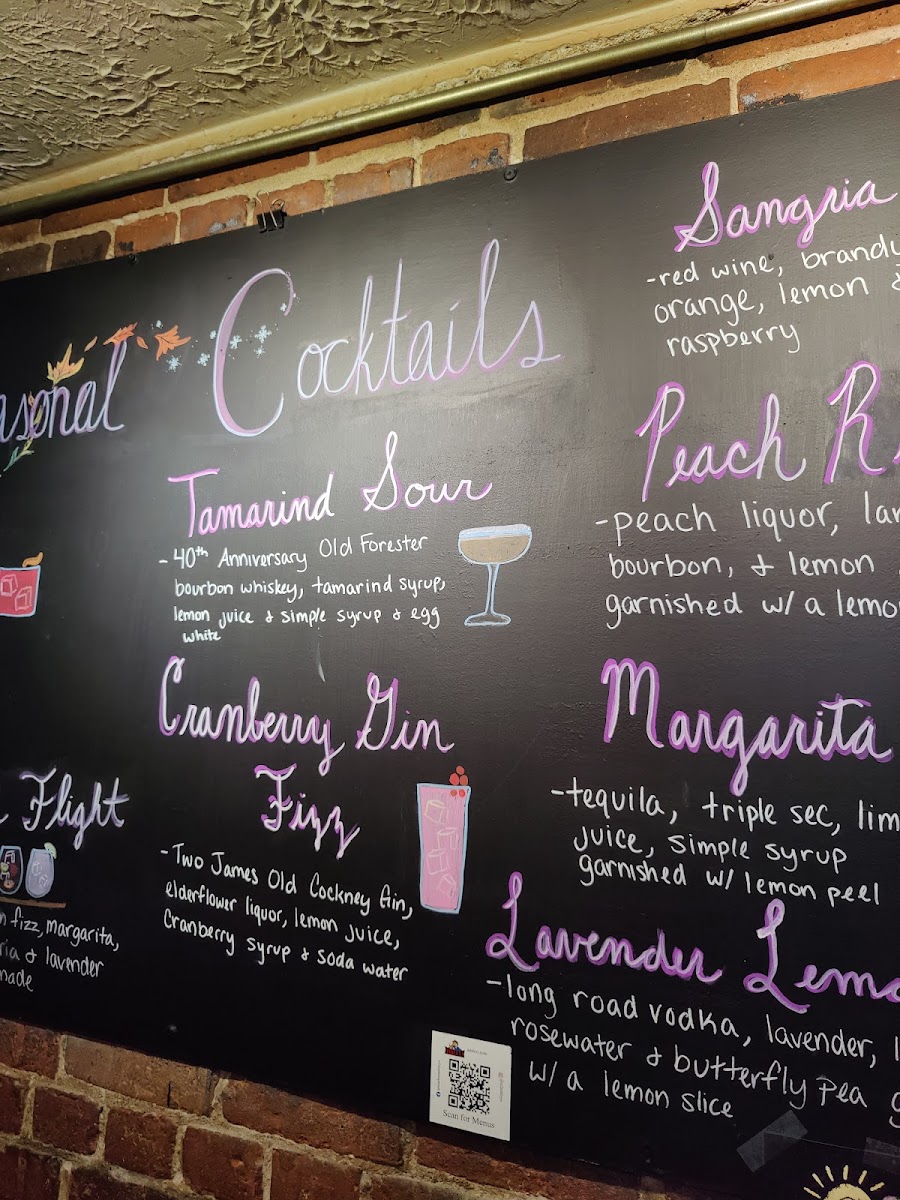 Cocktails
Tamarind Sour
- 40th Anniversary Old Forester
bourbon whiskey, tamarind syrup,
lemon juice & simple syrup & egg
white
Cranberry Gin
Fizz
- Two James Old Cockney Gin,
elderflower liquor, lemon juice,
Cranberry syrup & soda water
Flight
fizz, margarita,
& lavender
Sangria
- red wine, brandy
orange, lemon &
raspberry
Peach
- peach liquor,
bourbon, & lemon
garnished w/ a
Margarita
- tequila, triple sec,
juice, simple syrup
garnished w/ lemon peel
Lavender
- long road vodka, lavender,
rosewater & butterfly pea
w/ a lemon slice
Scan for Menus